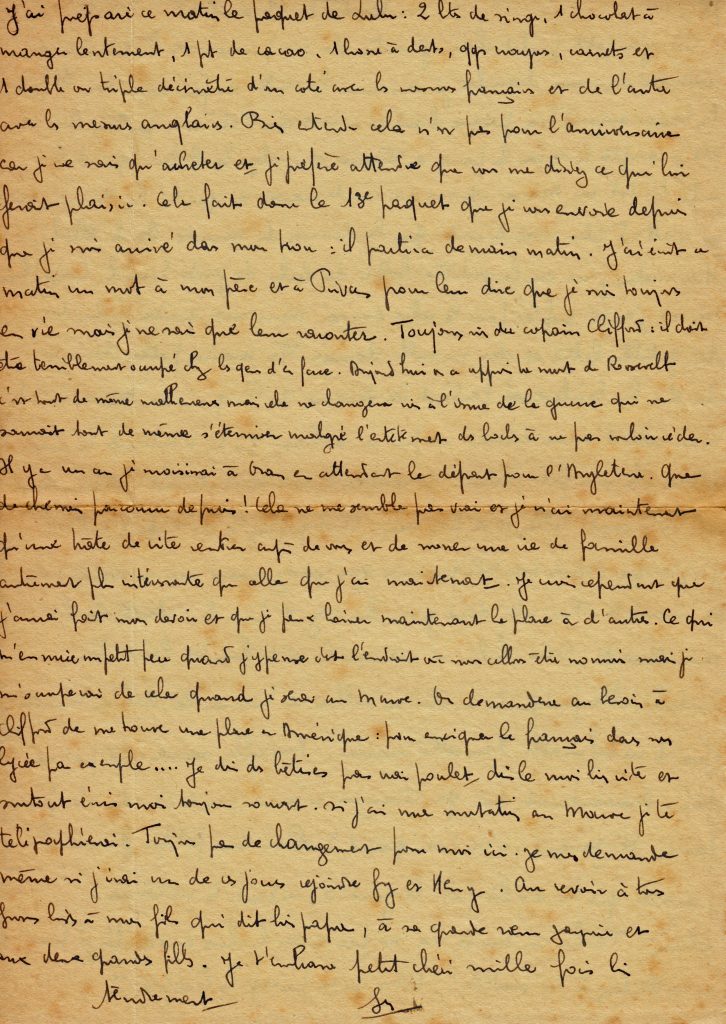 J'ai préparé ce matin le paquet de Lulu : 2 lts de singe, 1 chocolat à
manger lentement, 1 pt de cacao, 1 brosse à dents, qqs crayons, carnets et
1 double ou triple décimètre d'un coté avec les mesures français et de l'autre
avec les mesures anglaises. Bien entendu cela n'est pas pour l'anniversaire
car je ne sais qu'acheter et je préfère attendre que vous me disiez ce qui lui
ferait plaisir. Cela fait donc le 13e paquet que je vous envoie depuis
que je suis arrivé dans mon trou : il partira demain matin. J'ai écrit ce
matin un mot à mon père et à Privas pour leur dire que je suis toujours
en vie mais je ne sais que leur raconter. Toujours rien du copain Clifford : il doit
être terriblement occupé chez les gens d'en face. Aujourd'hui on a appris la mort de Roosevelt
c'est tout de même malheureux mais cela ne changera rien à l'issue de la guerre qui ne
saurait tout de même s'éterniser malgré l'entêtement des boches à ne pas vouloir céder.
Il y a un an je moisissais à Oran en attendant le départ pour l'Angleterre. Que
de chemin parcouru depuis ! Cela ne me semble pas vrai et je n'ai maintenant
qu'une hâte de vite rentrer auprès de vous et de mener une vie de famille
autrement plus intéressante que celle que j'ai maintenant. Je crois cependant que
j'aurai fait mon devoir et que je peux laisser maintenant la place à d'autres. Ce qui
m'ennuie un petit peu quand j'y pense c'est l'endroit où nous allons être nommés mais je
m'occuperai de cela quand je serai au Maroc. On demandera au besoin à
Clifford de me trouver une place en Amérique : pour enseigner le français dans un
lycée par exemple.... Je dis des bêtises pas vrai poulet, dis le moi bien vite et
surtout écris moi toujours souvent. Si j'ai une mutation au Maroc je te
télégraphierai. Toujours pas de changement pour moi ici. Je me demande
même si j'irai un de ces jours rejoindre Gy et Henry. Au revoir à tous
gros baisers à mon fils qui dit bien papa, à sa grande sœur et
aux deux grands fils. Je t'embrasse petit chéri mille fois bien
tendrement